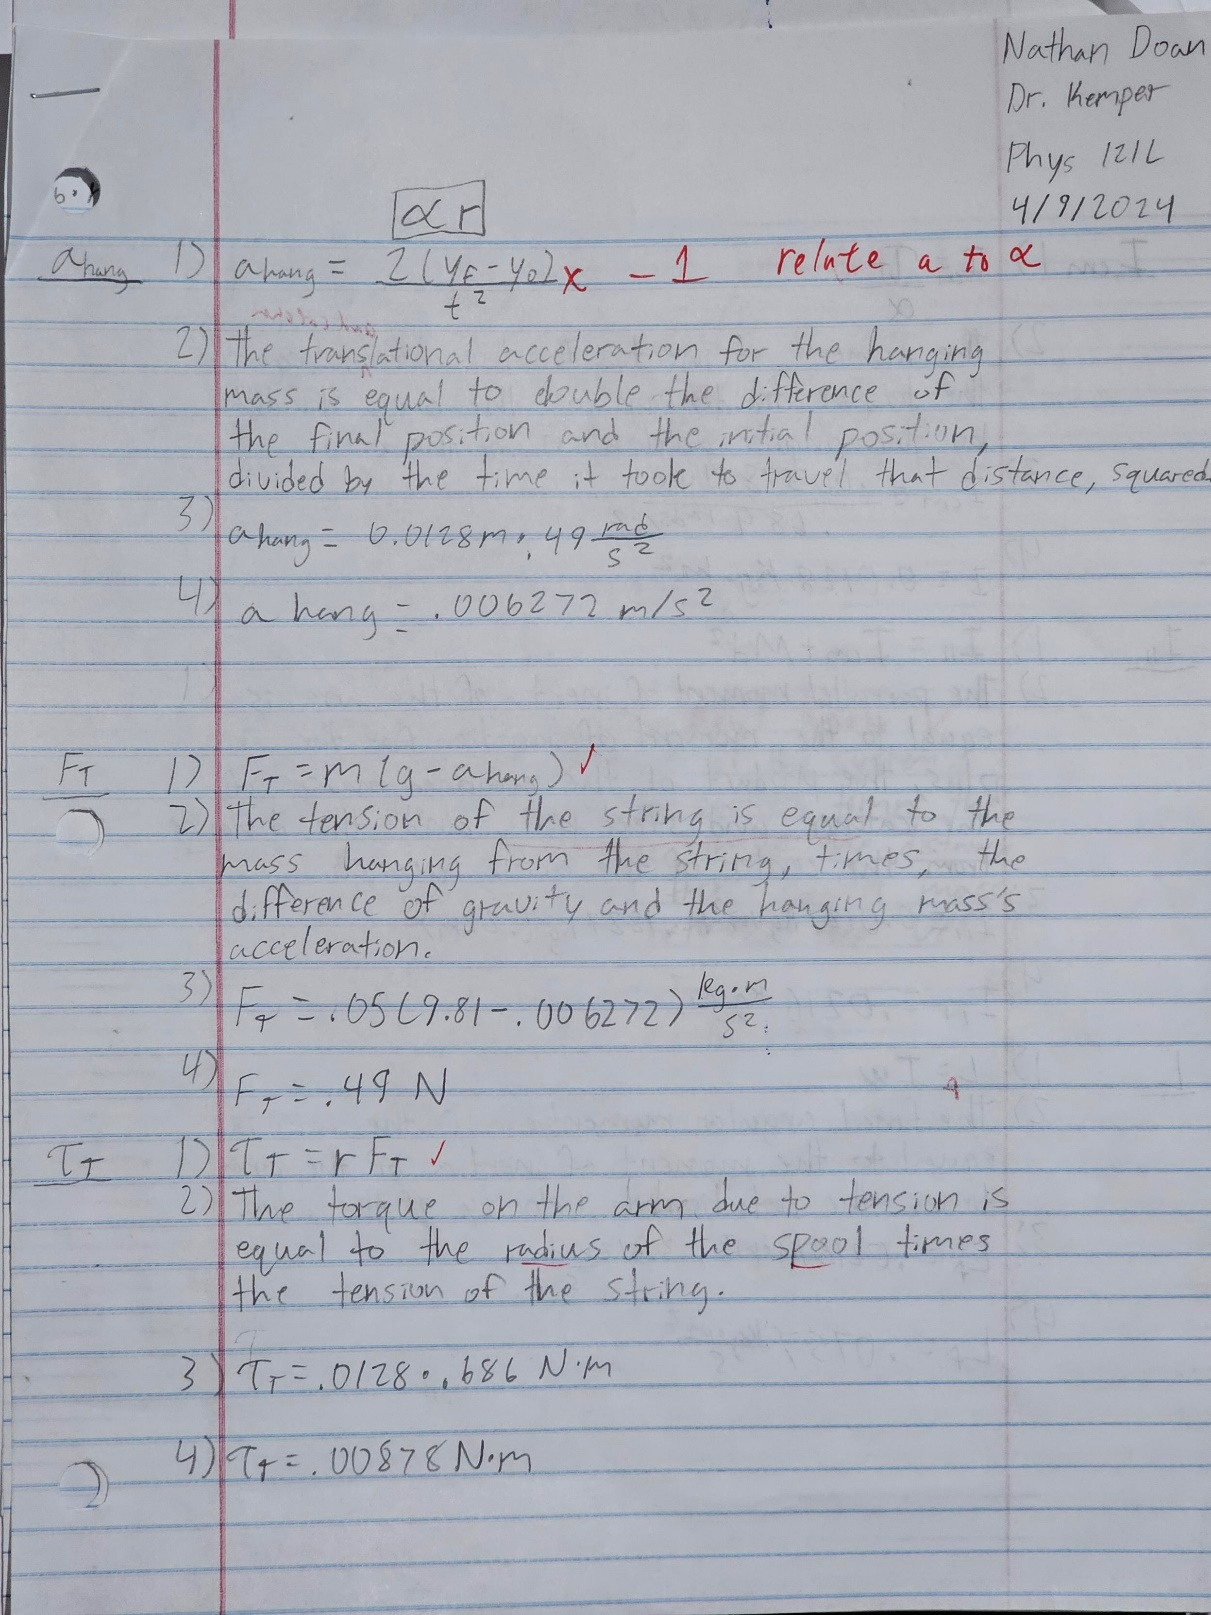 Nathan Doan
Dr. Kemper
Phys 121L
4/9/2024
αr
a hang 1) a hang = 2(yF - y0) / t² x - 1 relate a to α
2) The translational acceleration for the hanging
mass is equal to double the difference of
the final position and the initial position,
divided by the time it took to travel that distance, squared.
3) a hang = 0.0128m · .49 rad/s²
4) a hang = .006272 m/s²
FT 1) FT = m(g - a hang) ✓
2) The tension of the string is equal to the
mass hanging from the string, times, the
difference of gravity and the hanging mass's
acceleration.
3) FT = .05(9.81 - .006272) kg·m/s²
4) FT = .49 N
τT 1) τT = r FT ✓
2) The torque on the arm due to tension is
equal to the radius of the spool times
the tension of the string.
3) τT = .0128 · .686 N·m
4) τT = .00878 N·m